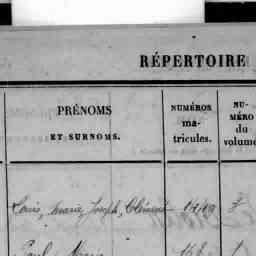 RÉPERTOIRE
PRÉNOMS
ET SURNOMS.
NUMÉROS
ma-
tricules.
NU-
MÉRO
du
volume
Louis, Marie Joseph, Clément
Paul